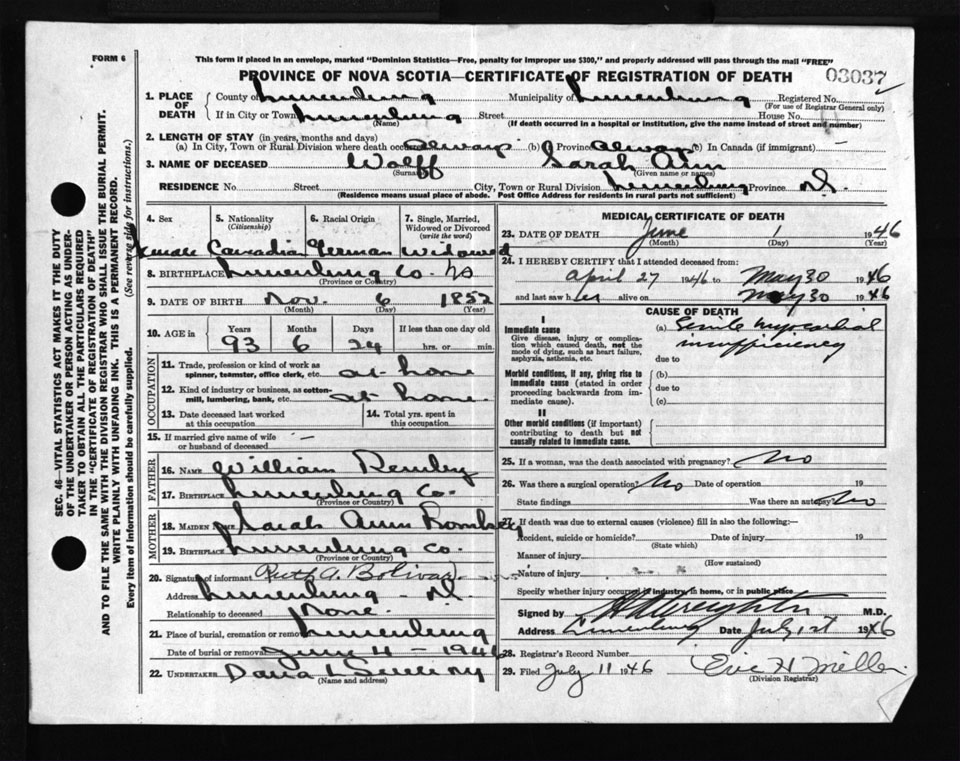 FORM 6
This form if placed in an envelope, marked "Dominion Statistics—Free, penalty for Improper use $300," and properly addressed will pass through the mail "FREE"
PROVINCE OF NOVA SCOTIA—CERTIFICATE OF REGISTRATION OF DEATH 03037
1. PLACE OF DEATH
County of Lunenburg Municipality of Lunenburg Registered No.
(For use of Registrar General only)
If in City or Town Lunenburg Street House No.
(Name) (If death occurred in a hospital or institution, give the name instead of street and number)
2. LENGTH OF STAY (in years, months and days)
(a) In City, Town or Rural Division where death occurred always (b) Province always (c) In Canada (if immigrant)
3. NAME OF DECEASED Wolff Sarah Ann
(Surname) (Given name or names)
RESIDENCE No. Street City, Town or Rural Division Lunenburg Province N.S.
(Residence means usual place of abode. Post Office Address for residents in rural parts not sufficient)
4. Sex 5. Nationality (Citizenship) 6. Racial Origin 7. Single, Married, Widowed or Divorced (write the word)
Female Canadian German Widowed
8. BIRTHPLACE Lunenburg Co. NS
(Province or Country)
9. DATE OF BIRTH Nov. 6 1852
(Month) (Day) (Year)
10. AGE in Years Months Days If less than one day old
93 6 24 hrs. or min.
OCCUPATION
11. Trade, profession or kind of work as spinner, teamster, office clerk, etc. at home
12. Kind of industry or business, as cotton-mill, lumbering, bank, etc. at home.
13. Date deceased last worked at this occupation 14. Total yrs. spent in this occupation
15. If married give name of wife or husband of deceased —
FATHER
16. NAME William
17. BIRTHPLACE Lunenburg Co.
(Province or Country)
MOTHER
18. MAIDEN NAME Sarah Ann
19. BIRTHPLACE Lunenburg Co.
(Province or Country)
20. Signature of informant Ruth A. Bolivar
Address Lunenburg N.S.
Relationship to deceased None.
21. Place of burial, cremation or removal Lunenburg
Date of burial or removal June 4 - 1946
22. UNDERTAKER
(Name and address)
MEDICAL CERTIFICATE OF DEATH
23. DATE OF DEATH June 1 1946
(Month) (Day) (Year)
24. I HEREBY CERTIFY that I attended deceased from:
April 27 1946 to May 30 1946
and last saw her alive on May 30 1946
CAUSE OF DEATH
I
Immediate cause
Give disease, injury or complication which caused death, not the mode of dying, such as heart failure, asphyxia, asthenia, etc.
(a) Senile myocardial insufficiency
due to
Morbid conditions, if any, giving rise to immediate cause (stated in order proceeding backwards from immediate cause).
(b)
due to
(c)
II
Other morbid conditions (if important) contributing to death but not causally related to immediate cause.
25. If a woman, was the death associated with pregnancy? No
26. Was there a surgical operation? No Date of operation 19
State findings Was there an autopsy? No
27. If death was due to external causes (violence) fill in also the following:—
Accident, suicide or homicide? Date of injury 19
(State which)
Manner of injury
(How sustained)
Nature of injury
Specify whether injury occurred in industry, in home, or in public place
Signed by M.D.
Address Lunenburg Date July 1st 1946
28. Registrar's Record Number
29. Filed July 11 1946
(Division Registrar)
SEC. 46—VITAL STATISTICS ACT MAKES IT THE DUTY
OF THE UNDERTAKER OR PERSON ACTING AS UNDER-
TAKER TO OBTAIN ALL THE PARTICULARS REQUIRED
IN THE "CERTIFICATE OF REGISTRATION OF DEATH"
AND TO FILE THE SAME WITH THE DIVISION REGISTRAR WHO SHALL ISSUE THE BURIAL PERMIT.
WRITE PLAINLY WITH UNFADING INK. THIS IS A PERMANENT RECORD.
Every item of information should be carefully supplied. (See reverse side for instructions.)